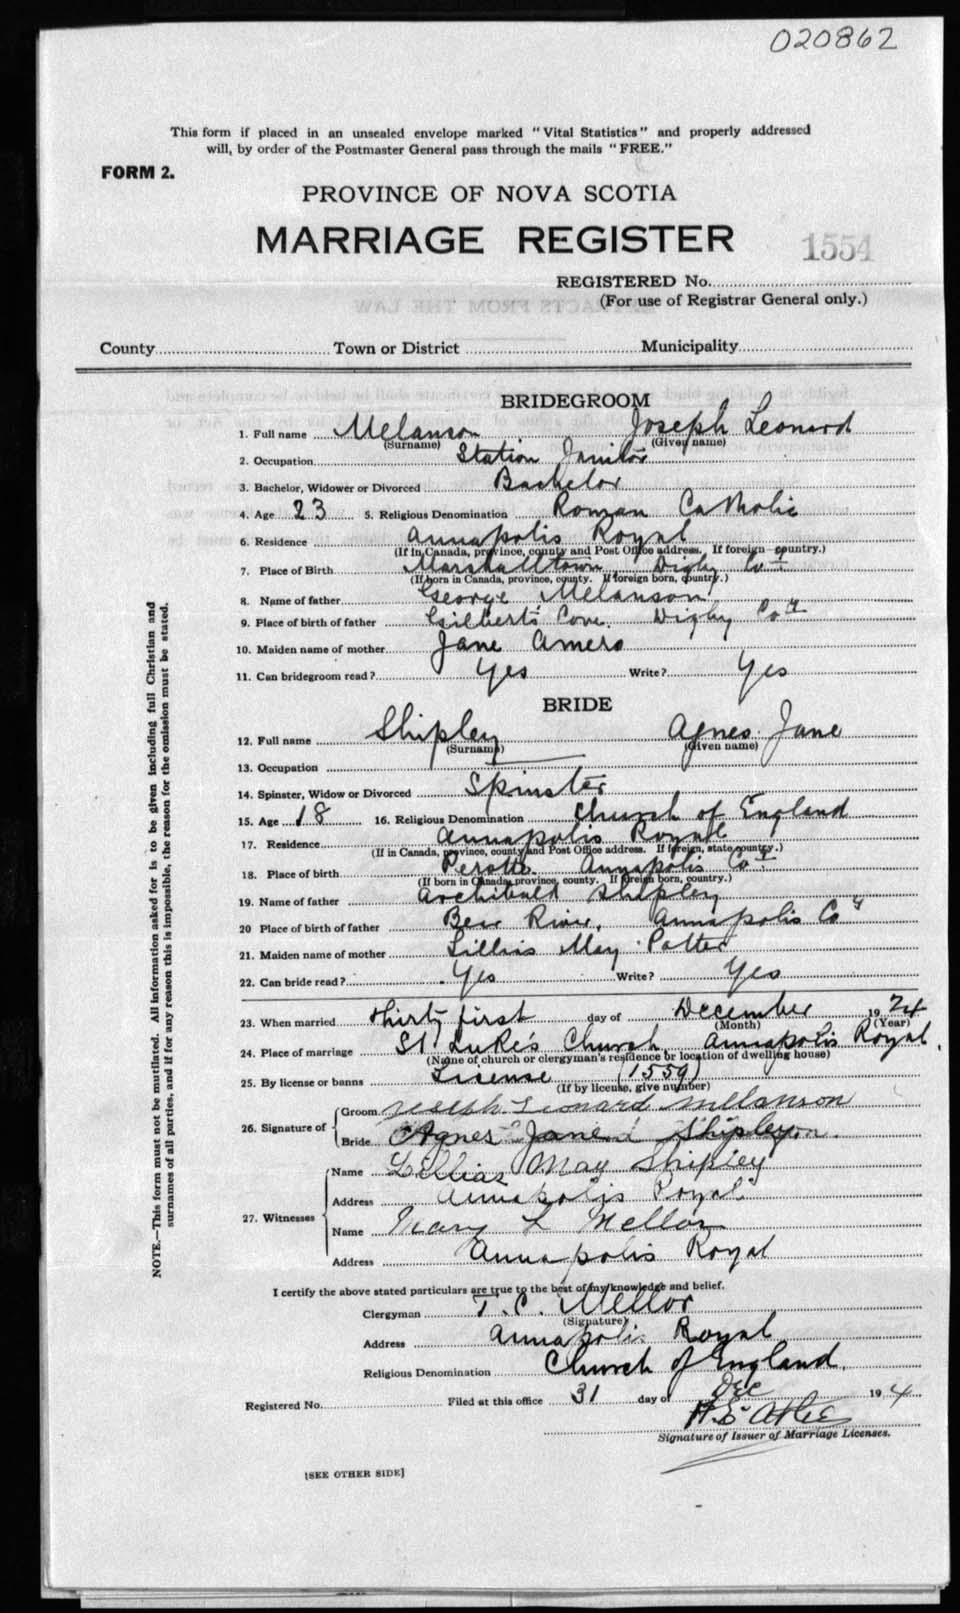 020862
This form if placed in an unsealed envelope marked "Vital Statistics" and properly addressed
will, by order of the Postmaster General pass through the mails "FREE."
FORM 2.
PROVINCE OF NOVA SCOTIA
MARRIAGE REGISTER
1554
REGISTERED No.
(For use of Registrar General only.)
County Town or District Municipality
BRIDEGROOM
1. Full name Melanson Joseph Leonard
(Surname) (Given name)
2. Occupation Station Janitor
3. Bachelor, Widower or Divorced Bachelor
4. Age 23 5. Religious Denomination Roman Catholic
6. Residence Annapolis Royal
(If in Canada, province, county and Post Office address. If foreign country.)
7. Place of Birth Marshalltown Digby Coy
(If born in Canada, province, county. If foreign born, country.)
8. Name of father George Melanson
9. Place of birth of father Gilberts Cove. Digby Coy
10. Maiden name of mother Jane Amero
11. Can bridegroom read? Yes Write? Yes
BRIDE
12. Full name Shipley Agnes Jane
(Surname) (Given name)
13. Occupation
14. Spinster, Widow or Divorced Spinster
15. Age 18 16. Religious Denomination Church of England
17. Residence Annapolis Royal
(If in Canada, province, county and Post Office address. If foreign, state country.)
18. Place of birth Perotte Annapolis Coy
(If born in Canada, province, county. If foreign born, country.)
19. Name of father Archibald Shipley
20 Place of birth of father Bear River, Annapolis Coy
21. Maiden name of mother Lillias May Potter
22. Can bride read? Yes Write? Yes
23. When married thirty first day of December 1924
(Month) (Year)
24. Place of marriage St Luke's Church Annapolis Royal.
(Name of church or clergyman's residence or location of dwelling house)
25. By license or banns License (1559)
(If by license, give number)
26. Signature of
Groom Joseph Leonard Melanson
Bride Agnes Jane Shipley
27. Witnesses
Name Lillias May Shipley
Address Annapolis Royal
Name Mary L Mellor
Address Annapolis Royal
I certify the above stated particulars are true to the best of my knowledge and belief.
Clergyman T. C. Mellor
(Signature)
Address Annapolis Royal
Religious Denomination Church of England.
Registered No. Filed at this office 31 day of Dec 19 4
Signature of Issuer of Marriage Licenses.
[SEE OTHER SIDE]
NOTE.—This form must not be mutilated. All information asked for is to be given including full Christian and
surnames of all parties, and if for any reason this is impossible, the reason for the omission must be stated.